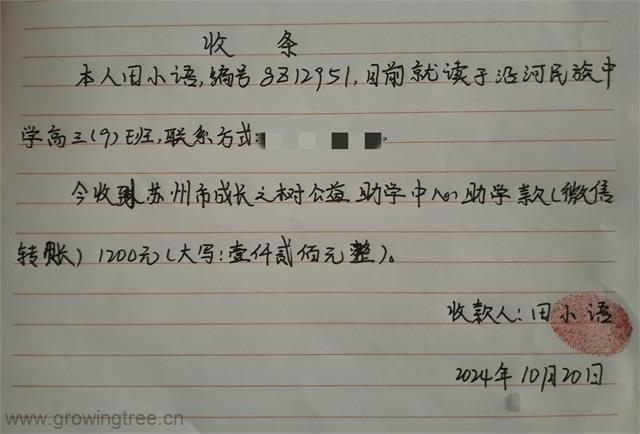 收 条
本人田小语,编号8Z12951,目前就读于沿河民族中
学高三(9)班,联系方式:
今收到苏州市成长之树公益助学中心助学款(微信
转账)1200元(大写:壹仟贰佰元整)。
收款人:田小语
2024年10月20日
www.growingtree.cn